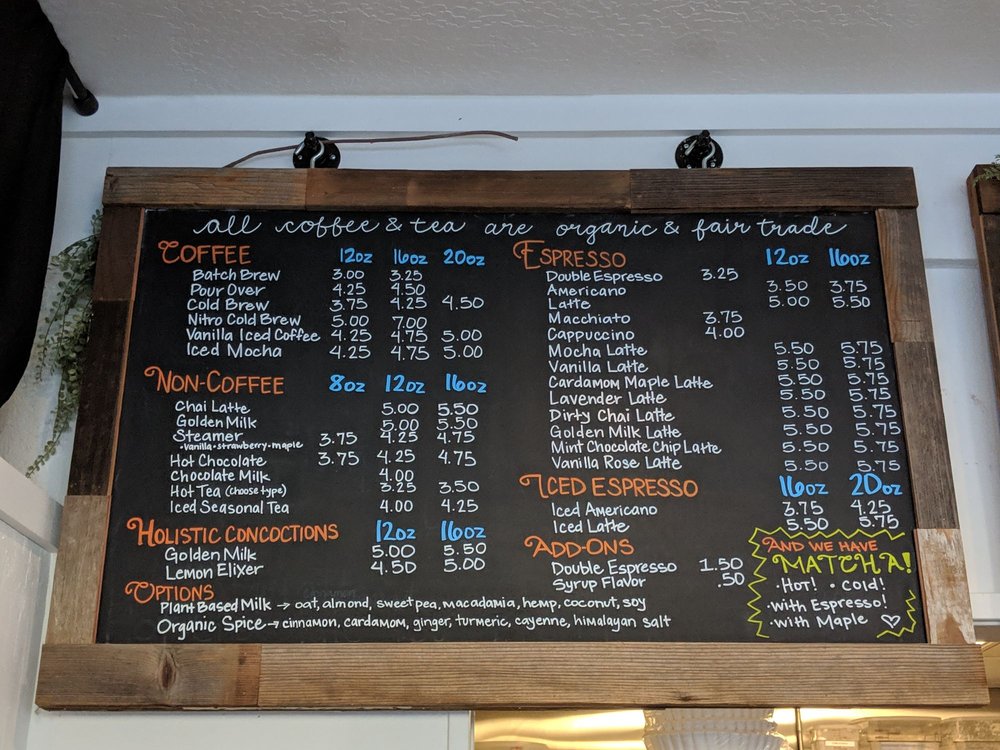 all coffee & tea are organic & fair trade
COFFEE 12oz 16oz 20oz
Batch Brew 3.00 3.25
Pour Over 4.25 4.50
Cold Brew 3.75 4.25 4.50
Nitro Cold Brew 5.00 7.00
Vanilla Iced Coffee 4.25 4.75 5.00
Iced Mocha 4.25 4.75 5.00
NON-COFFEE 8oz 12oz 16oz
Chai Latte 5.00 5.50
Golden Milk 5.00 5.50
Steamer 3.75 4.25 4.75
•vanilla•strawberry•maple
Hot Chocolate 3.75 4.25 4.75
Chocolate Milk 4.00
Hot Tea (choose type) 3.25 3.50
Iced Seasonal Tea 4.00 4.25
HOLISTIC CONCOCTIONS 12oz 16oz
Golden Milk 5.00 5.50
Lemon Elixer 4.50 5.00
OPTIONS
Plant Based Milk → oat, almond, sweet pea, macadamia, hemp, coconut, soy
Organic Spice → cinnamon, cardamom, ginger, turmeric, cayenne, himalayan salt
ESPRESSO 12oz 16oz
Double Espresso 3.25
Americano 3.50 3.75
Latte 5.00 5.50
Macchiato 3.75
Cappuccino 4.00
Mocha Latte 5.50 5.75
Vanilla Latte 5.50 5.75
Cardamom Maple Latte 5.50 5.75
Lavender Latte 5.50 5.75
Dirty Chai Latte 5.50 5.75
Golden Milk Latte 5.50 5.75
Mint Chocolate Chip Latte 5.50 5.75
Vanilla Rose Latte 5.50 5.75
ICED ESPRESSO 16oz 20oz
Iced Americano 3.75 4.25
Iced Latte 5.50 5.75
ADD-ONS
Double Espresso 1.50
Syrup Flavor .50
AND WE HAVE
MATCHA!
•Hot! •Cold!
•with Espresso!
•with Maple ♡